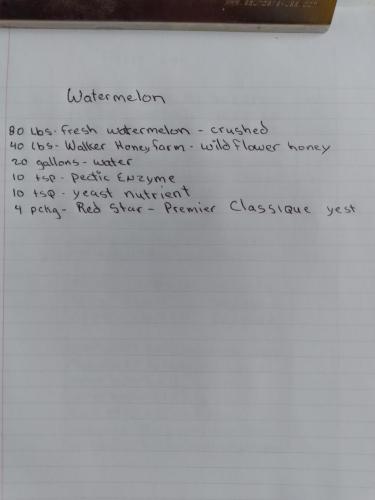 Watermelon
80 Lbs. fresh watermelon - crushed
40 lbs- Walker Honey farm - wildflower honey
20 gallons - water
10 tsp - Pectic Enzyme
10 tsp - yeast nutrient
4 pckg - Red Star - Premier Classique yest